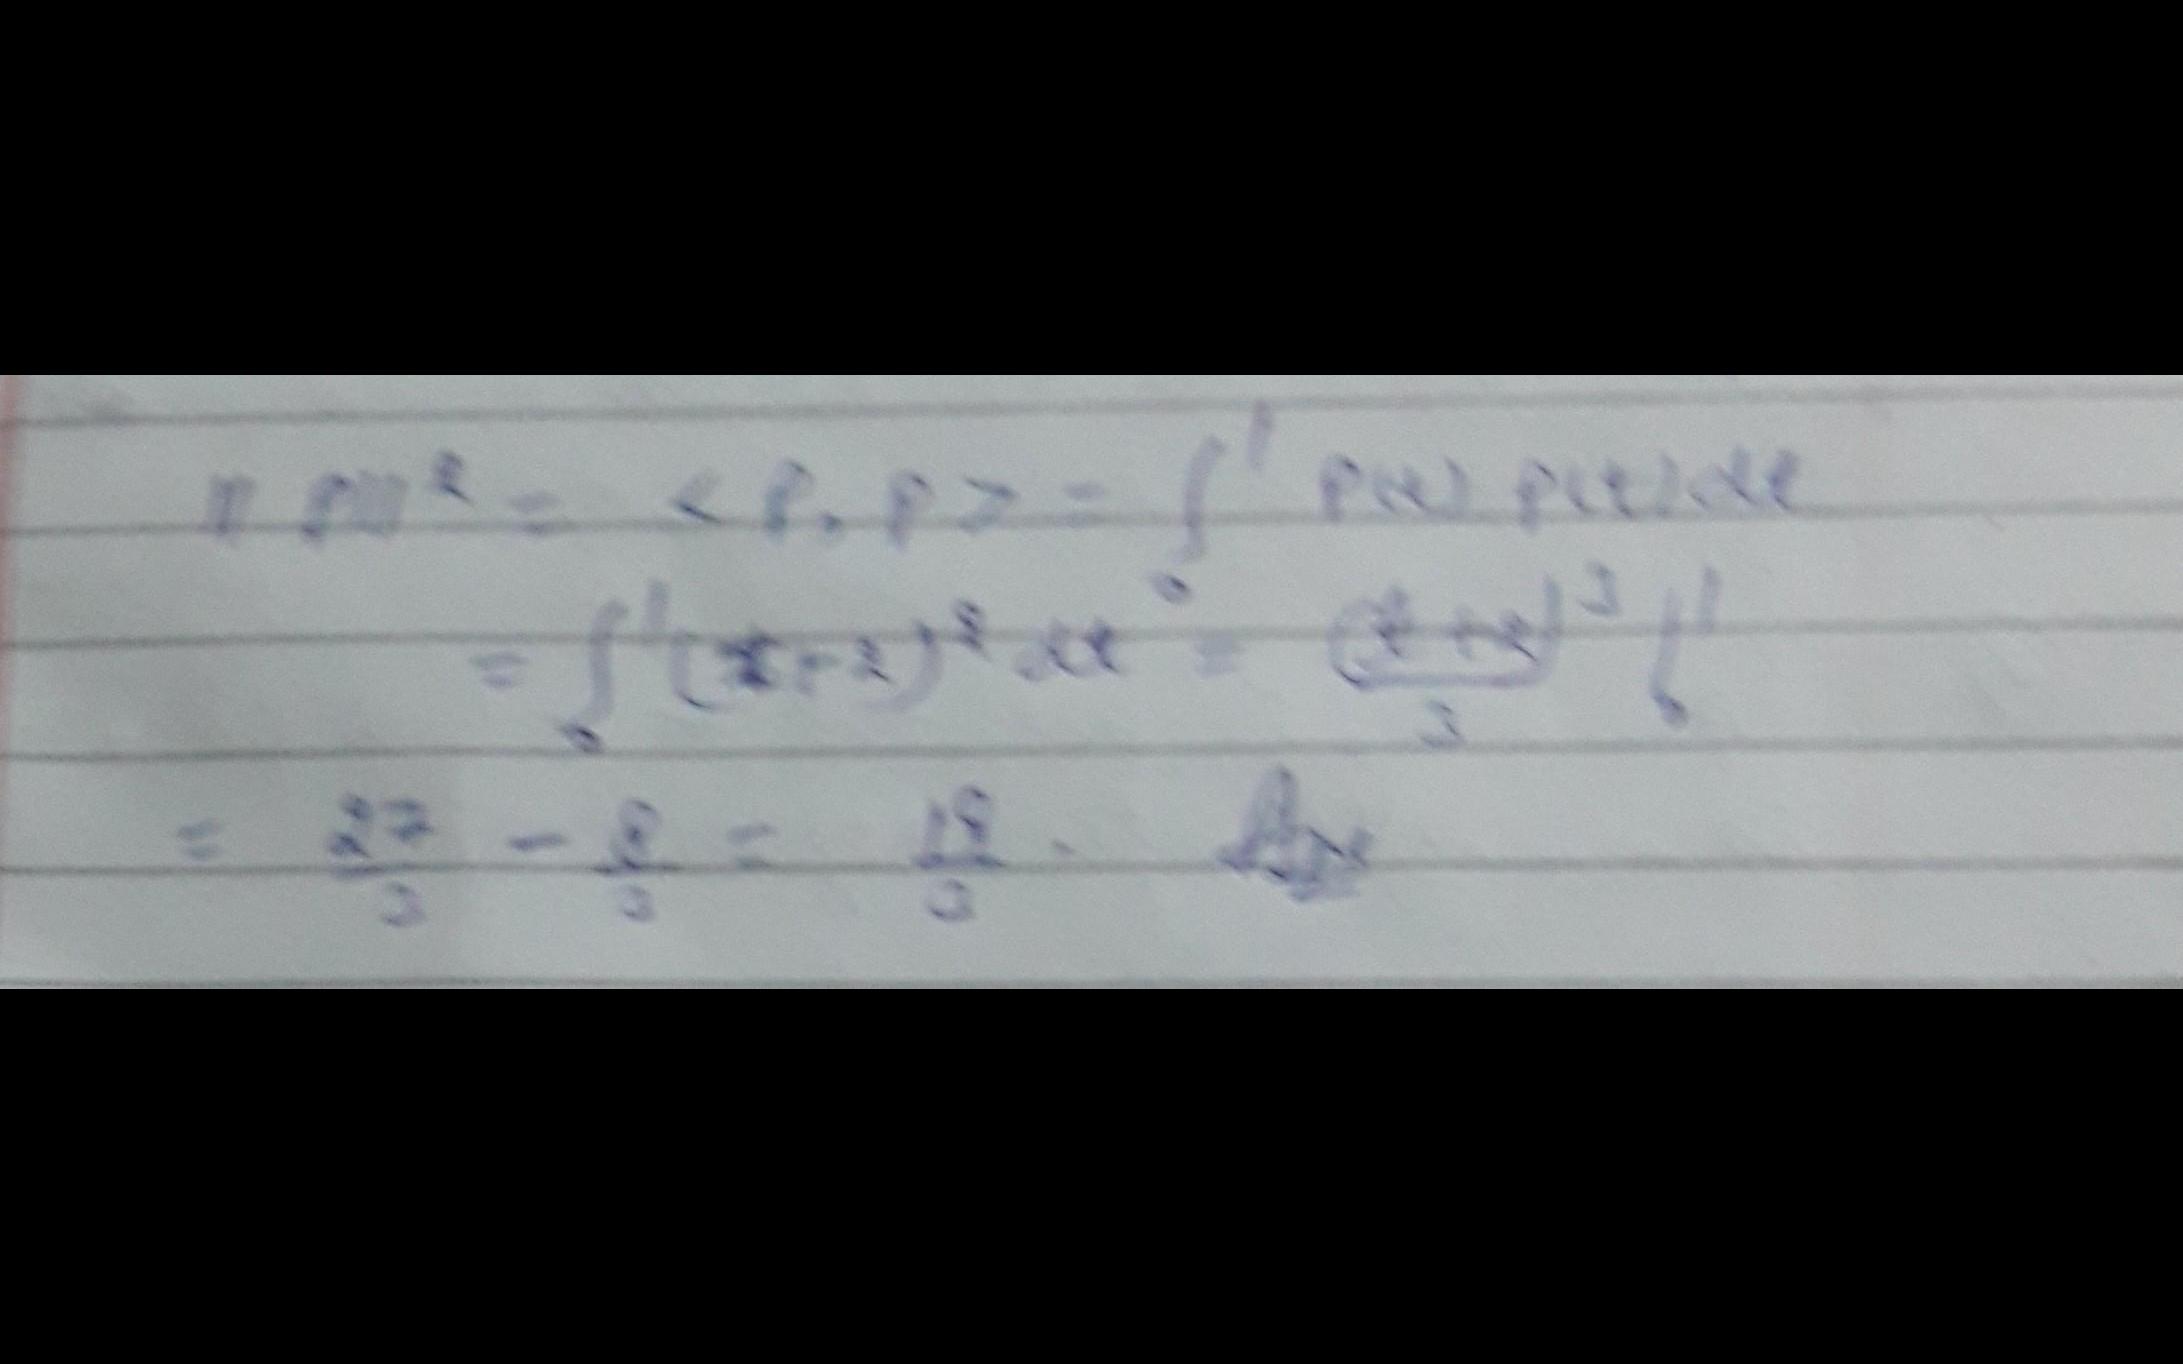 ||P||² = <P, P> = ∫₀¹ P(t) P(t) dt
= ∫₀¹ (t+2)² dt = (t+2)³/3 |₀¹
= 27/3 - 8/3 = 19/3 . Ans